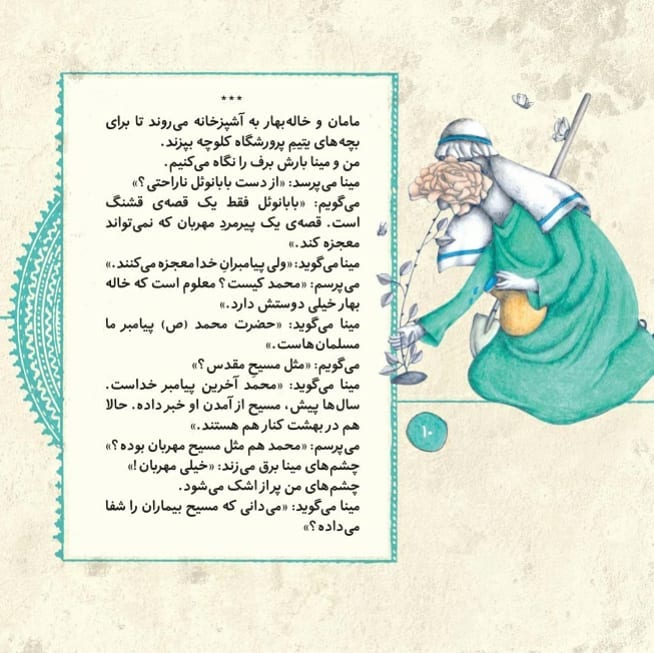 ***
مامان و خاله‌بهار به آشپزخانه می‌روند تا برای
بچه‌های یتیمِ پرورشگاه کلوچه بپزند.
من و مینا بارش برف را نگاه می‌کنیم.
مینا می‌پرسد: «از دست بابانوئل ناراحتی؟»
می‌گویم: «بابانوئل فقط یک قصه‌ی قشنگ
است. قصه‌ی یک پیرمردِ مهربان که نمی‌تواند
معجزه کند.»
مینا می‌گوید: «ولی پیامبرانِ خدا معجزه می‌کنند.»
می‌پرسم: «محمد کیست؟ معلوم است که خاله
بهار خیلی دوستش دارد.»
مینا می‌گوید: «حضرت محمد (ص) پیامبر ما
مسلمان‌هاست.»
می‌گویم: «مثل مسیحِ مقدس؟»
مینا می‌گوید: «محمد آخرین پیامبر خداست.
سال‌ها پیش، مسیح از آمدن او خبر داده. حالا
هم در بهشت کنار هم هستند.»
می‌پرسم: «محمد هم مثل مسیح مهربان بوده؟»
چشم‌های مینا برق می‌زند: «خیلی مهربان!»
چشم‌های من پر از اشک می‌شود.
مینا می‌گوید: «می‌دانی که مسیح بیماران را شفا
می‌داده؟»
۱۰